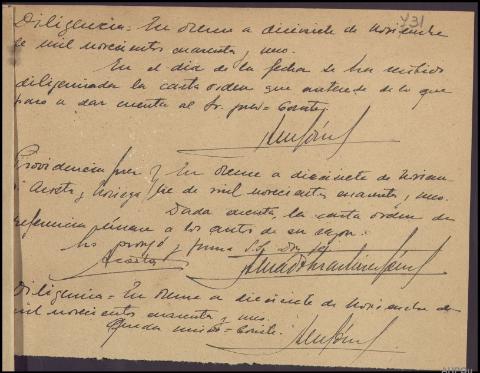 431
Diligencia = En Orense a diecisiete de Noviembre
de mil novecientos cuarenta y uno.
En el día de la fecha se ha recibido
diligenciada la carta orden que antecede de lo que
paso a dar cuenta al Sr. Juez = Conste
Providencia Juez } En Orense a diecisiete de Noviem-
Acosta y Noriega } bre de mil novecientos cuarenta y uno.
Dada cuenta, la carta orden de
referencia únase a los autos de su razón.
Lo proveyó y firma S.S. Doy fe
Acosta
Diligencia = En Orense a diecisiete de Noviembre de
mil novecientos cuarenta y uno.
Queda unida = Conste.